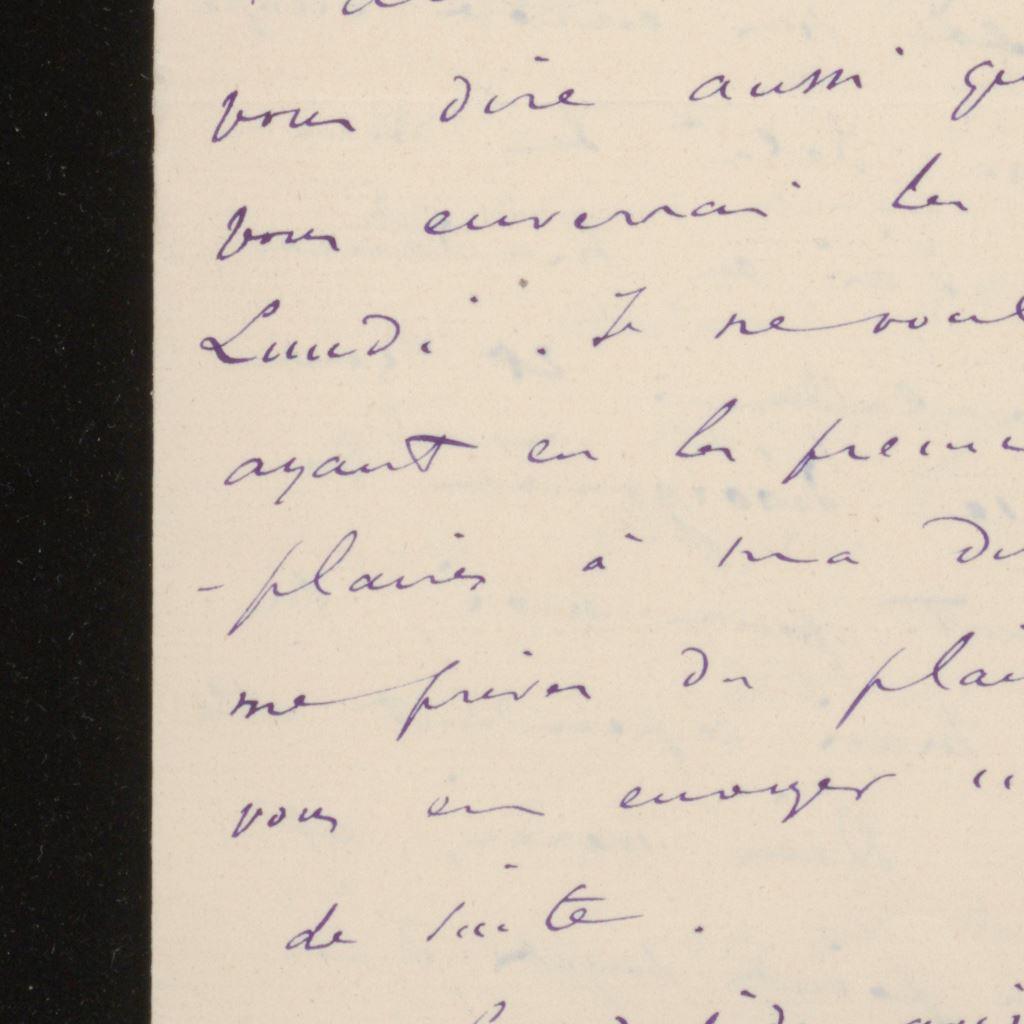 vous dire aussi qu
vous enverrai les
Lundi. Je ne voul
ayant eu les premi
-plaires à ma di
me priver du plai
vous en envoyer "
de suite.